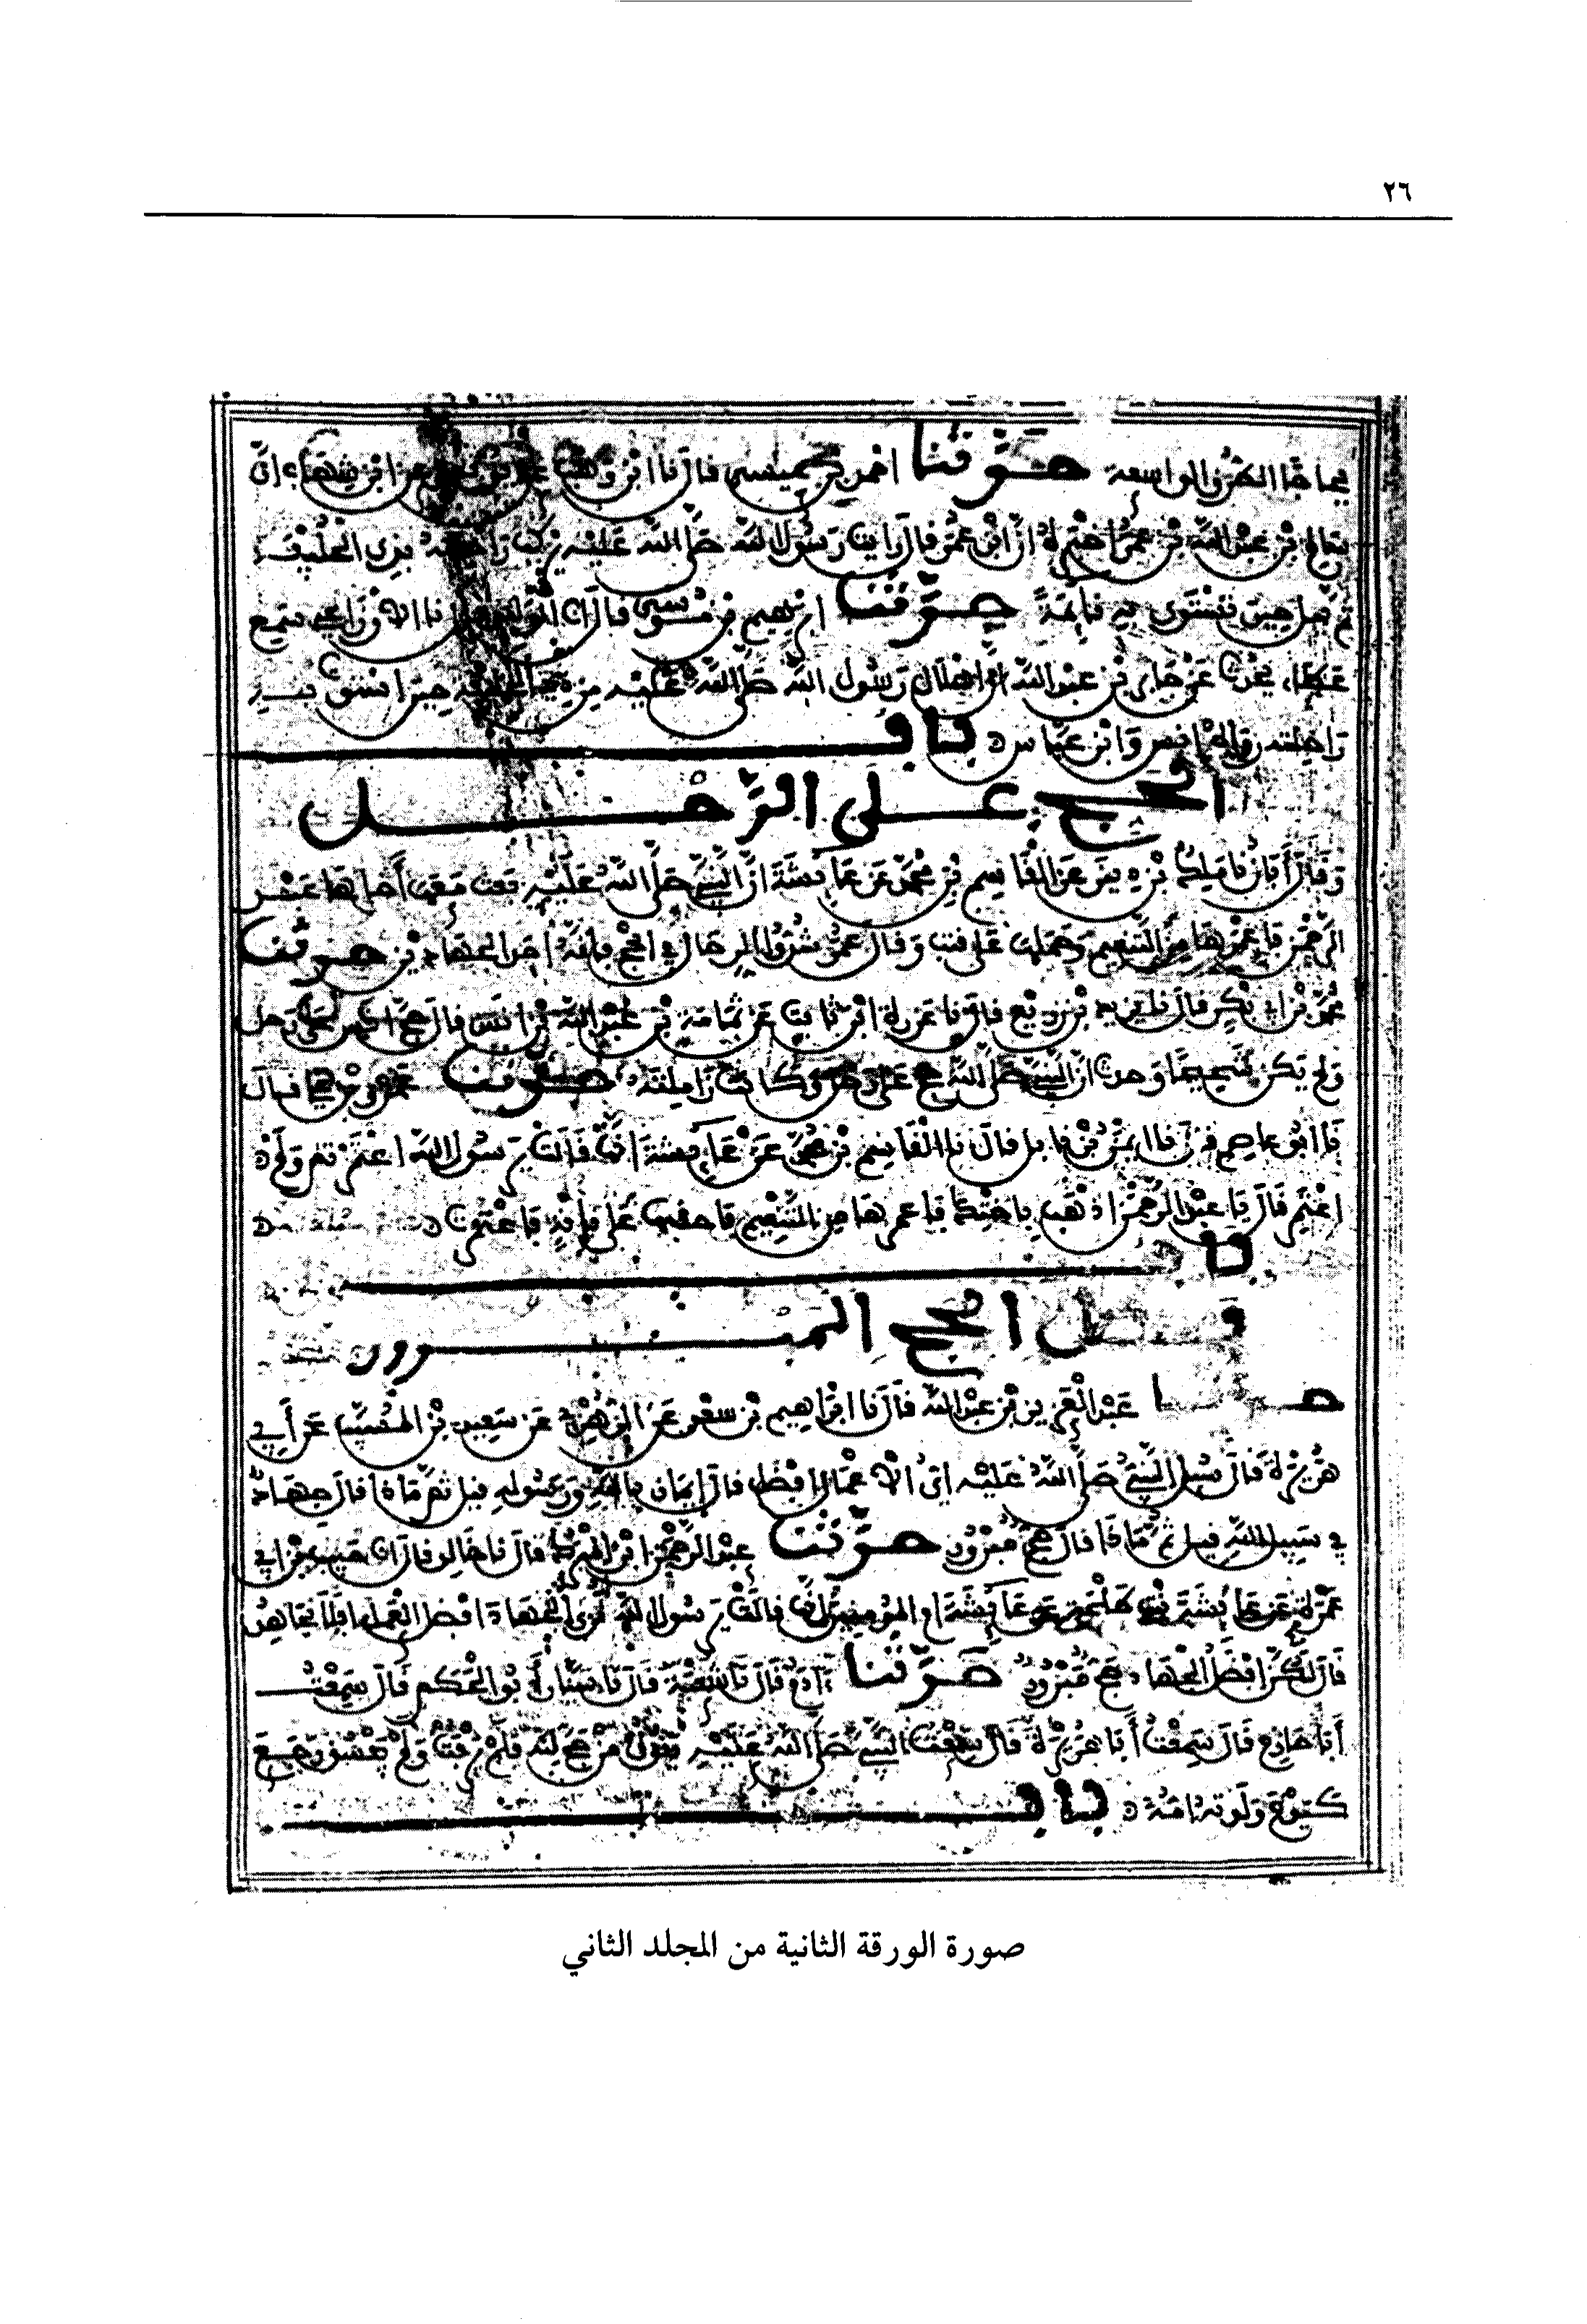 ٢٦
فجاجا الطرق الواسعة حدثنا احمد بن عيسى قال نا ابن وهب عن ابن شهاب ان
سالم بن عبد الله بن عمر اخبره ان ابن عمر قال رايت رسول الله صلى الله عليه يركب راحلته بذي الحليفة
ثم يهل حين تستوي به قايمة حدثنا ابرهيم بن موسى قال انا الوليد قال نا الاوزاعي سمع
عطاء يحدث عن جابر بن عبد الله ان اهلال رسول الله صلى الله عليه من ذي الحليفة حين استوت به
راحلته رواه انس وابن عباس باب
الحج على الرحل
وقال أبان نا ملك بن دينر عن القاسم بن محمد عن عايشة ان النبي صلى الله عليه بعث معها أخاها عبد
الرحمن فاعمرها من التنعيم وحملها على قتب وقال عمر شدوا الرحال في الحج فانه احد الجهادين حدثنا
محمد بن ابي بكر قال نا يزيد بن زريع قال نا عزرة ابن ثابت عن ثمامة بن عبد الله بن انس قال حج انس على رحل
ولم يكن شحيحا وحدث ان النبي صلى الله حج على رحل وكانت زاملته حدثنا عمرو بن علي قال
نا ابو عاصم قال نا ايمن بن نابل قال نا القاسم بن محمد عن عايشة انها قالت يرسول الله اعتمرتم ولم
اعتمر قال يا عبد الرحمن اذهب باختك فاعمرها من التنعيم فاحقبها على ناقة فاعتمرت
باب
فضل الحج المبرور
حدثنا عبد العزيز بن عبد الله قال نا ابراهيم بن سعد عن الزهري عن سعيد بن المسيب عن أبي
هريرة قال سيل النبي صلى الله عليه اي الاعمال افضل قال إيمان بالله ورسوله قيل ثم ماذا قال جهاد
في سبيل الله قيل ثم ماذا قال حج مبرور حدثنا عبد الرحمن ابن المبرك قال نا خالد قال انا حبيب بن ابي
عمرة عن عايشة بنت طلحة عن عايشة ام المومنين قالت يرسول الله نرى الجهاد افضل العمل افلا نجاهد
قال لكن افضل الجهاد حج مبرور حدثنا ادم قال نا شعبة قال نا سيار أبو الحكم قال سمعت
أبا حازم قال سمعت أبا هريرة قال سمعت النبي صلى الله عليه يقول من حج لله فلم يرفث ولم يفسق رجع
كيوم ولدته امه باب
صورة الورقة الثانية من المجلد الثاني